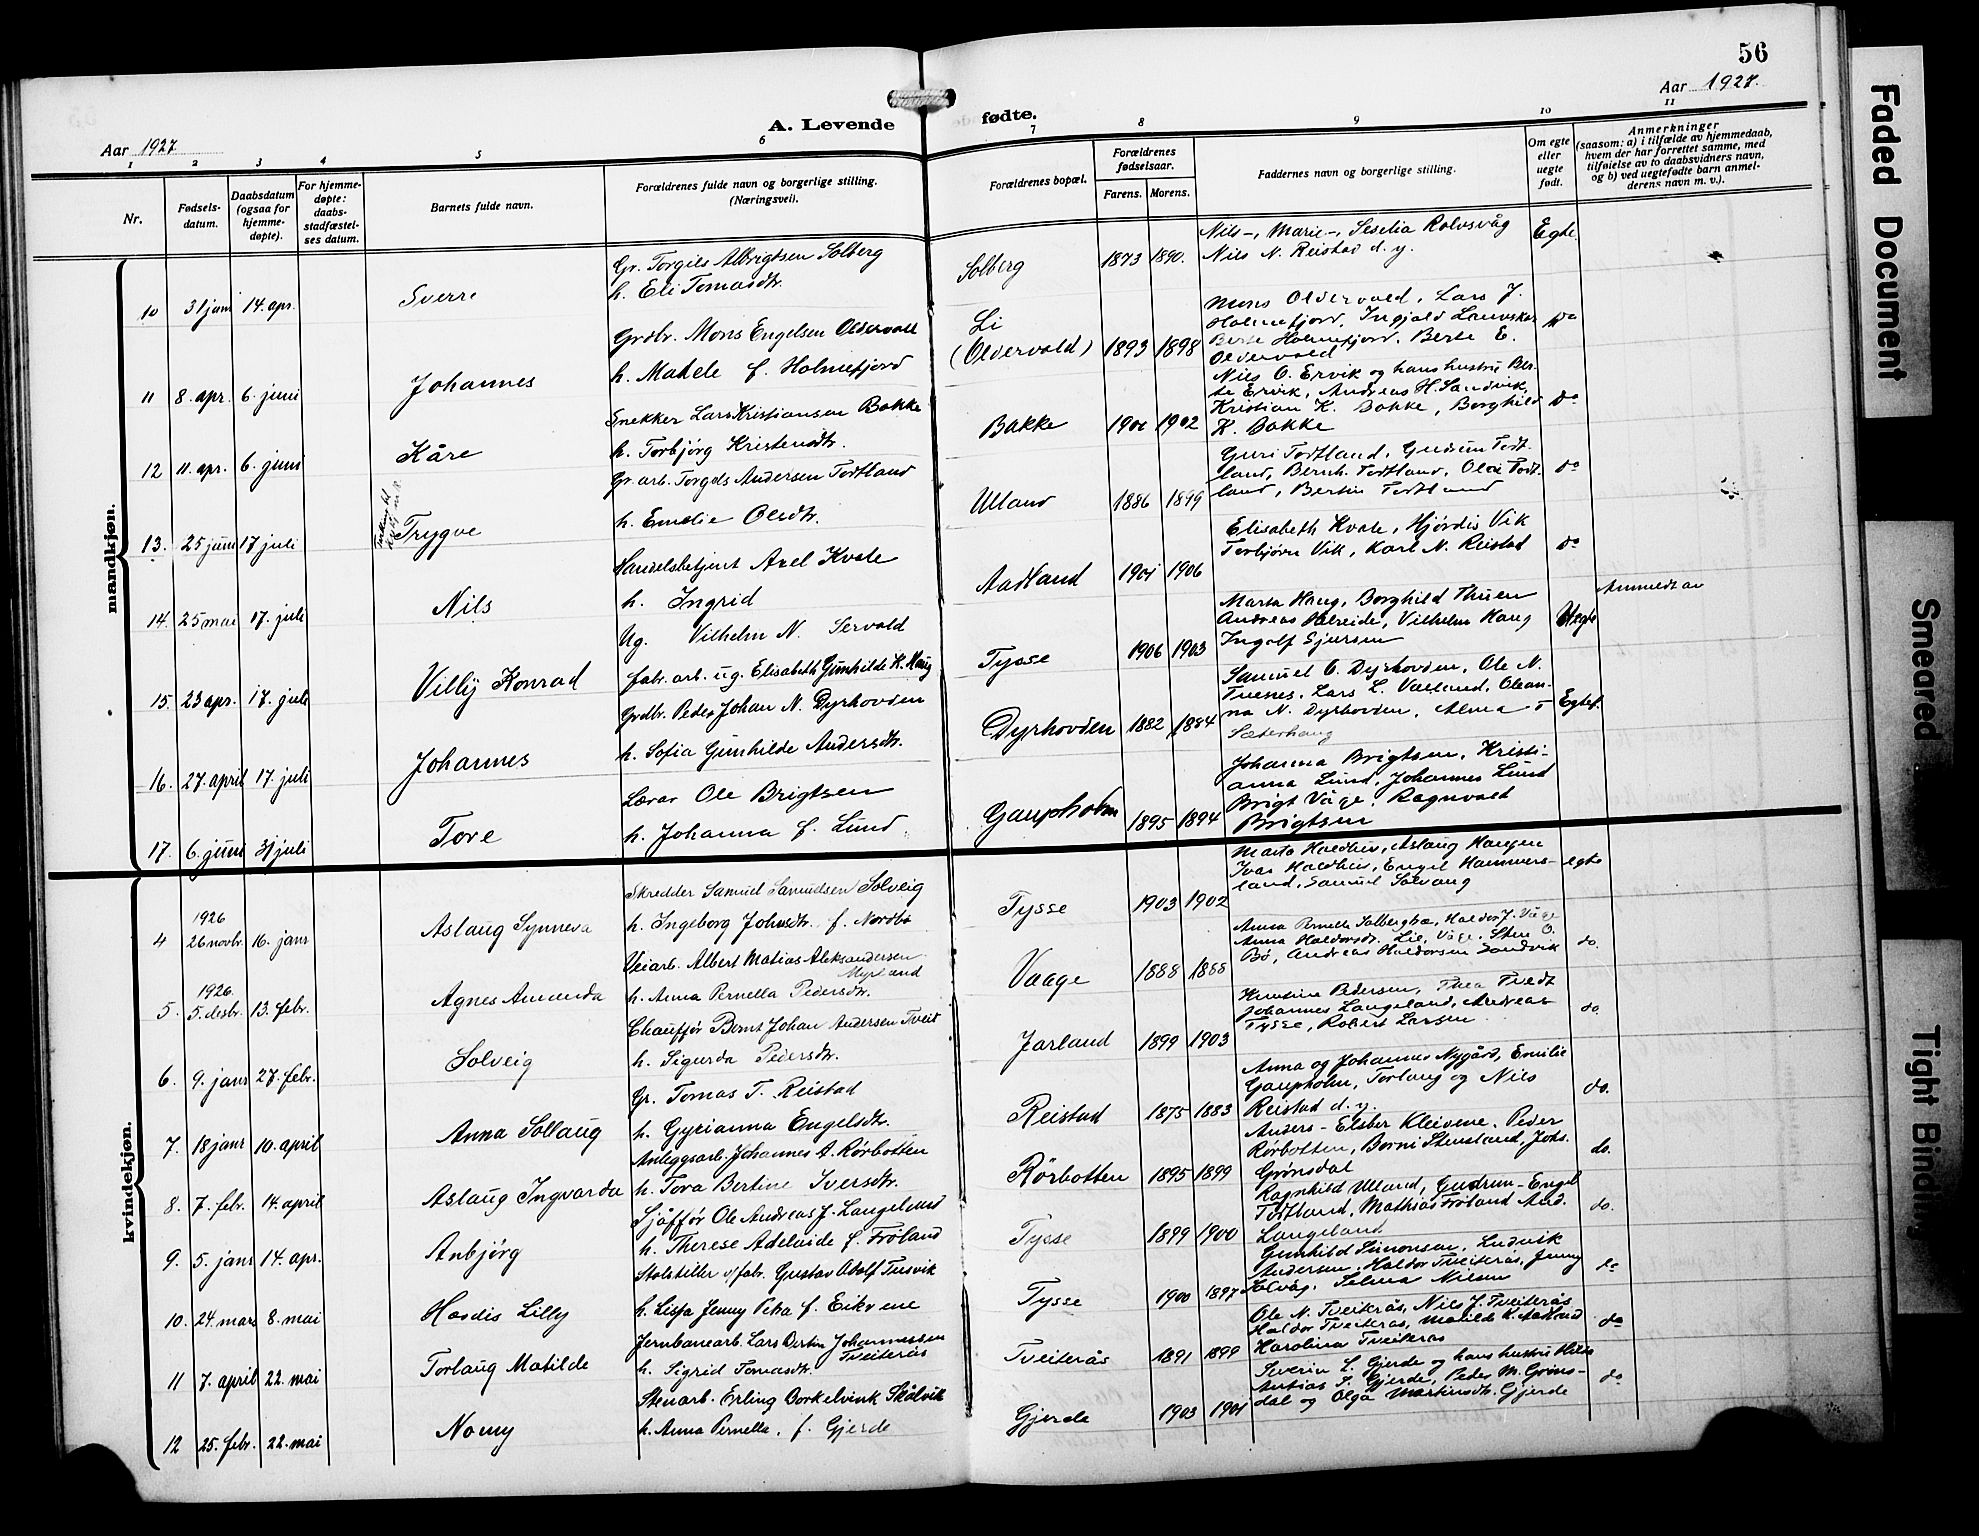 56
Aar 1927
A. Levende
fødte.
Aar 1927.
1 2 3 4 5 6 7 8 9 10 11
Nr.
Fødsels-
datum.
Daabsdatum
(ogsaa for
hjemme-
døpte).
For hjemme-
døpte:
daabs-
stadfæstel-
ses datum.
Barnets fulde navn.
Forældrenes fulde navn og borgerlige stilling.
(Næringsvei).
Forældrenes bopæl.
Forældrenes
fødselsaar.
Farens. Morens.
Faddernes navn og borgerlige stilling.
Om egte
eller
uegte
født.
Anmerkninger
(saasom: a) i tilfælde av hjemmedaab,
hvem der har forrettet samme, med
tilføielse av to daabsvidners navn,
og b) ved uegtefødte barn anmel-
derens navn m. v.).
mandkjøn.
10 14. apr. Sverre
Gr. Torgils Albrigtsen Solberg
h. Eli Tomasdtr.
Solberg 1873 1890.
Nils-, Marie-, Sesilia Rolvsvåg
Nils N. Reistad d. y.
Egte
11 8. apr. 6. juni Johannes
Grdbr. Mons Engelsen Oldervoll
h. Makele f. Holmefjord
Li
(Oldervold) 1893 1898
Mons Oldervold, Lars J.
Holmefjord, Ingjald
Berte Holmefjord, Berte E.
Oldervold
do
12 11. apr. 6. juni Kåre
Snekker Lars Kristiansen Bakke
h. Torbjørg Kristensdtr.
Bakke 1902
Nils O. Ervik og hans hustru Ber-
te Ervik, Andreas H. Sandvik
Kristian K. Bakke, Borghild
K. Bakke
do
13. 25 juni 17 juli Trygve
Gr. arb. Torgels Andersen Todtland
h. Emelie Olsdtr.
Ulland 1886 1899
Guri Todtland, Gudrun Todt-
land, Bernh. Todtland, Olai Todt-
land, Bertin Todtland
do
14. 25 mai 17. juli Nils
Handelsbetjent Axel Kvale
h. Ingrid
Aadland 1901 1906
Elisabeth Kvale, Hjørdis Vik
Torbjørn Vik, Karl N. Reistad
do
15. 23 apr. 17. juli Villy Konrad
Ug. Vilhelm N. Servold
fabr. arb. ug. Elisabeth Gunhilde K. Haug
Tysse 1906 1903
Marta Haug, Borghild Thuen
Andreas Halreide, Vilhelm Haug
Ingolf Sjursen
Uegte
Anmeldt av
16. 27. april 17. juli Johannes
Grdbr. Peder Johan N. Dyrhovden
h. Sofia Gunhilde Andersdtr.
Dyrhovden 1882 1884
Samuel O. Dyrhovden, Ole N.
Tuenes, Lars L. Valland, Olean-
na N. Dyrhovden, Alma
Sæterhaug
Egtef.
17. 6. juni 31 juli Tore
Lærar Ole Brigtsen
h. Johanna f. Lund.
Gaupholm 1895 1894
Johanna Brigtsen, Kristi-
anna Lund, Johannes Lund
Brigt Våge, Ragnvald
Brigtsen
kvindekjøn.
4 1926
26 novbr. 16. janr Aslaug Synneva
Skredder Samuel Samuelsen Solveig
h. Ingeborg Johnsdtr. f. Nordbø
Tysse 1903 1902
Marta Haldhus, Aslaug Haugen
Ivar Haldhus, Engel Hammers-
land, Samuel Solvang
egte
5. 1926.
5. desbr. 13. febr. Agnes Amanda
Veiarb. Albert Matias Aleksandersen
Myrland
h. Anna Pernella Pedersdtr.
Vaage 1888 1888
Anna Pernella Solbergbæ, Haldor J. Våge
Anna Haldorsdr. Lie, Våge, Sten O.
Bø, Andreas Haldorsen Sandvik
do.
6. 9. janr 27. febr. Solveig
Chauffør Bernt Johan Andersen Tveit
h. Sigurda Pedersdtr.
Jarland 1899 1903
Kristine Pedersen, Thea Tvedt
Johannes Langeland, Andreas
Tysse, Robert Larsen
do.
7. 18 janr 10. april Anna Sollaug
Gr. Tomas T. Reistad
h. Gyrianna Engelsdtr.
Reistad 1875 1883
Anna og Johannes Nygård, Emilie
Gaupholm, Torlaug og Nils
Reistad d. y.
do.
8. 7. febr. 14. april Aslaug Ingvarda
Anleggsarb. Johannes A. Rørbotten
h. Tora Bertine Iversdtr.
Rørbotten 1895 1899
Anders- Elsber Kleivene, Peder
Rørbotten, Borni Stensland, Johs.
Grønsdal
do.
9. 5. janr 14. apr. Anbjørg
Sjåffør Ole Andreas J. Langeland
h. Therese Adelaide f. Frøland
Tysse 1899 1900
Ragnhild Ulland, Gudrun-Engel
Todtland, Mathias Frøland And.
Langeland
do.
10. 24. mars 8. mai Hordis Lilly
Stolstiller v/fabr. Gustav Adolf Tusvik
h. Lisja Jenny Petra f. Eikvene
Tysse 1900 1897
Gunhild Simonsen, Ludvik
Andersen, Haldor Tveiterås, Jenny
Solvåg, Selma Nilsen
do
11 7. april 22. mai Torlaug Matilde
Jernbanearb. Lars Bertin Johannessen
Tveiterås
h. Sigrid Tomasdtr.
Tveiterås 1891 1899
Ole N. Tveiterås, Nils J. Tveiterås
Haldor Tveiterås, Matilde K. Aadland
Karolina Tveiterås
do
12 25. febr. 22. mai Nomy
Stenarb. Erling Borkelvink Skålvik
h. Anna Pernella. f. Gjerde
Gjerde 1903 1901
Severin L. Gjerde og hans hustru Hilda
Antias S. Gjerde, Peder M. Grøns-
dal og Olga Martinsdtr. Gjerde
do
Faded Document
Smeared
Tight Binding